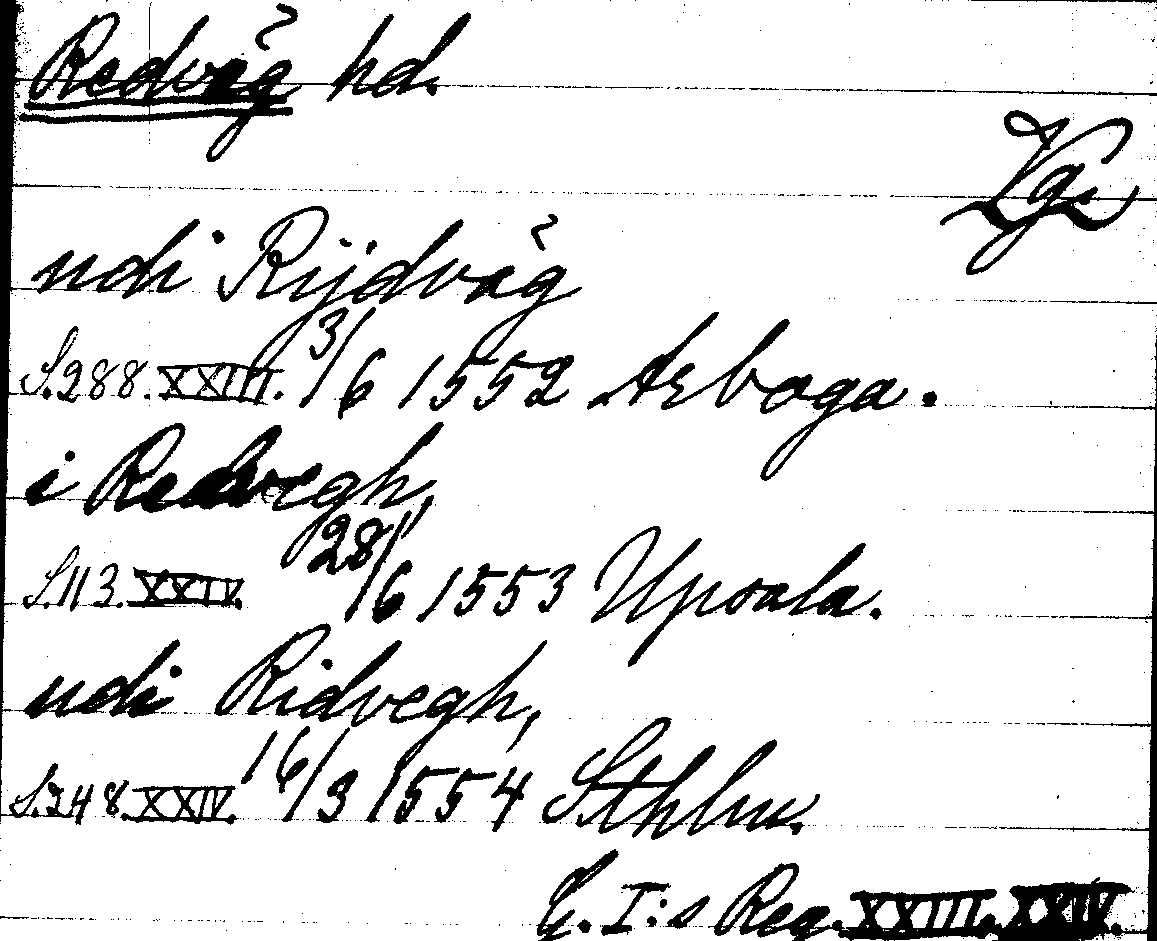 Redvåg hd.
Vg.
udi Rijdvåg
S.288.XXIII. 3/6 1552 Arboga.
i Redvegh,
S.113.XXIV. 28/6 1553 Upsala.
udi Ridvegh,
S.248.XXIV. 16/3 1554 Sthlm.
G. I:s Reg. XXIII. XXIV.